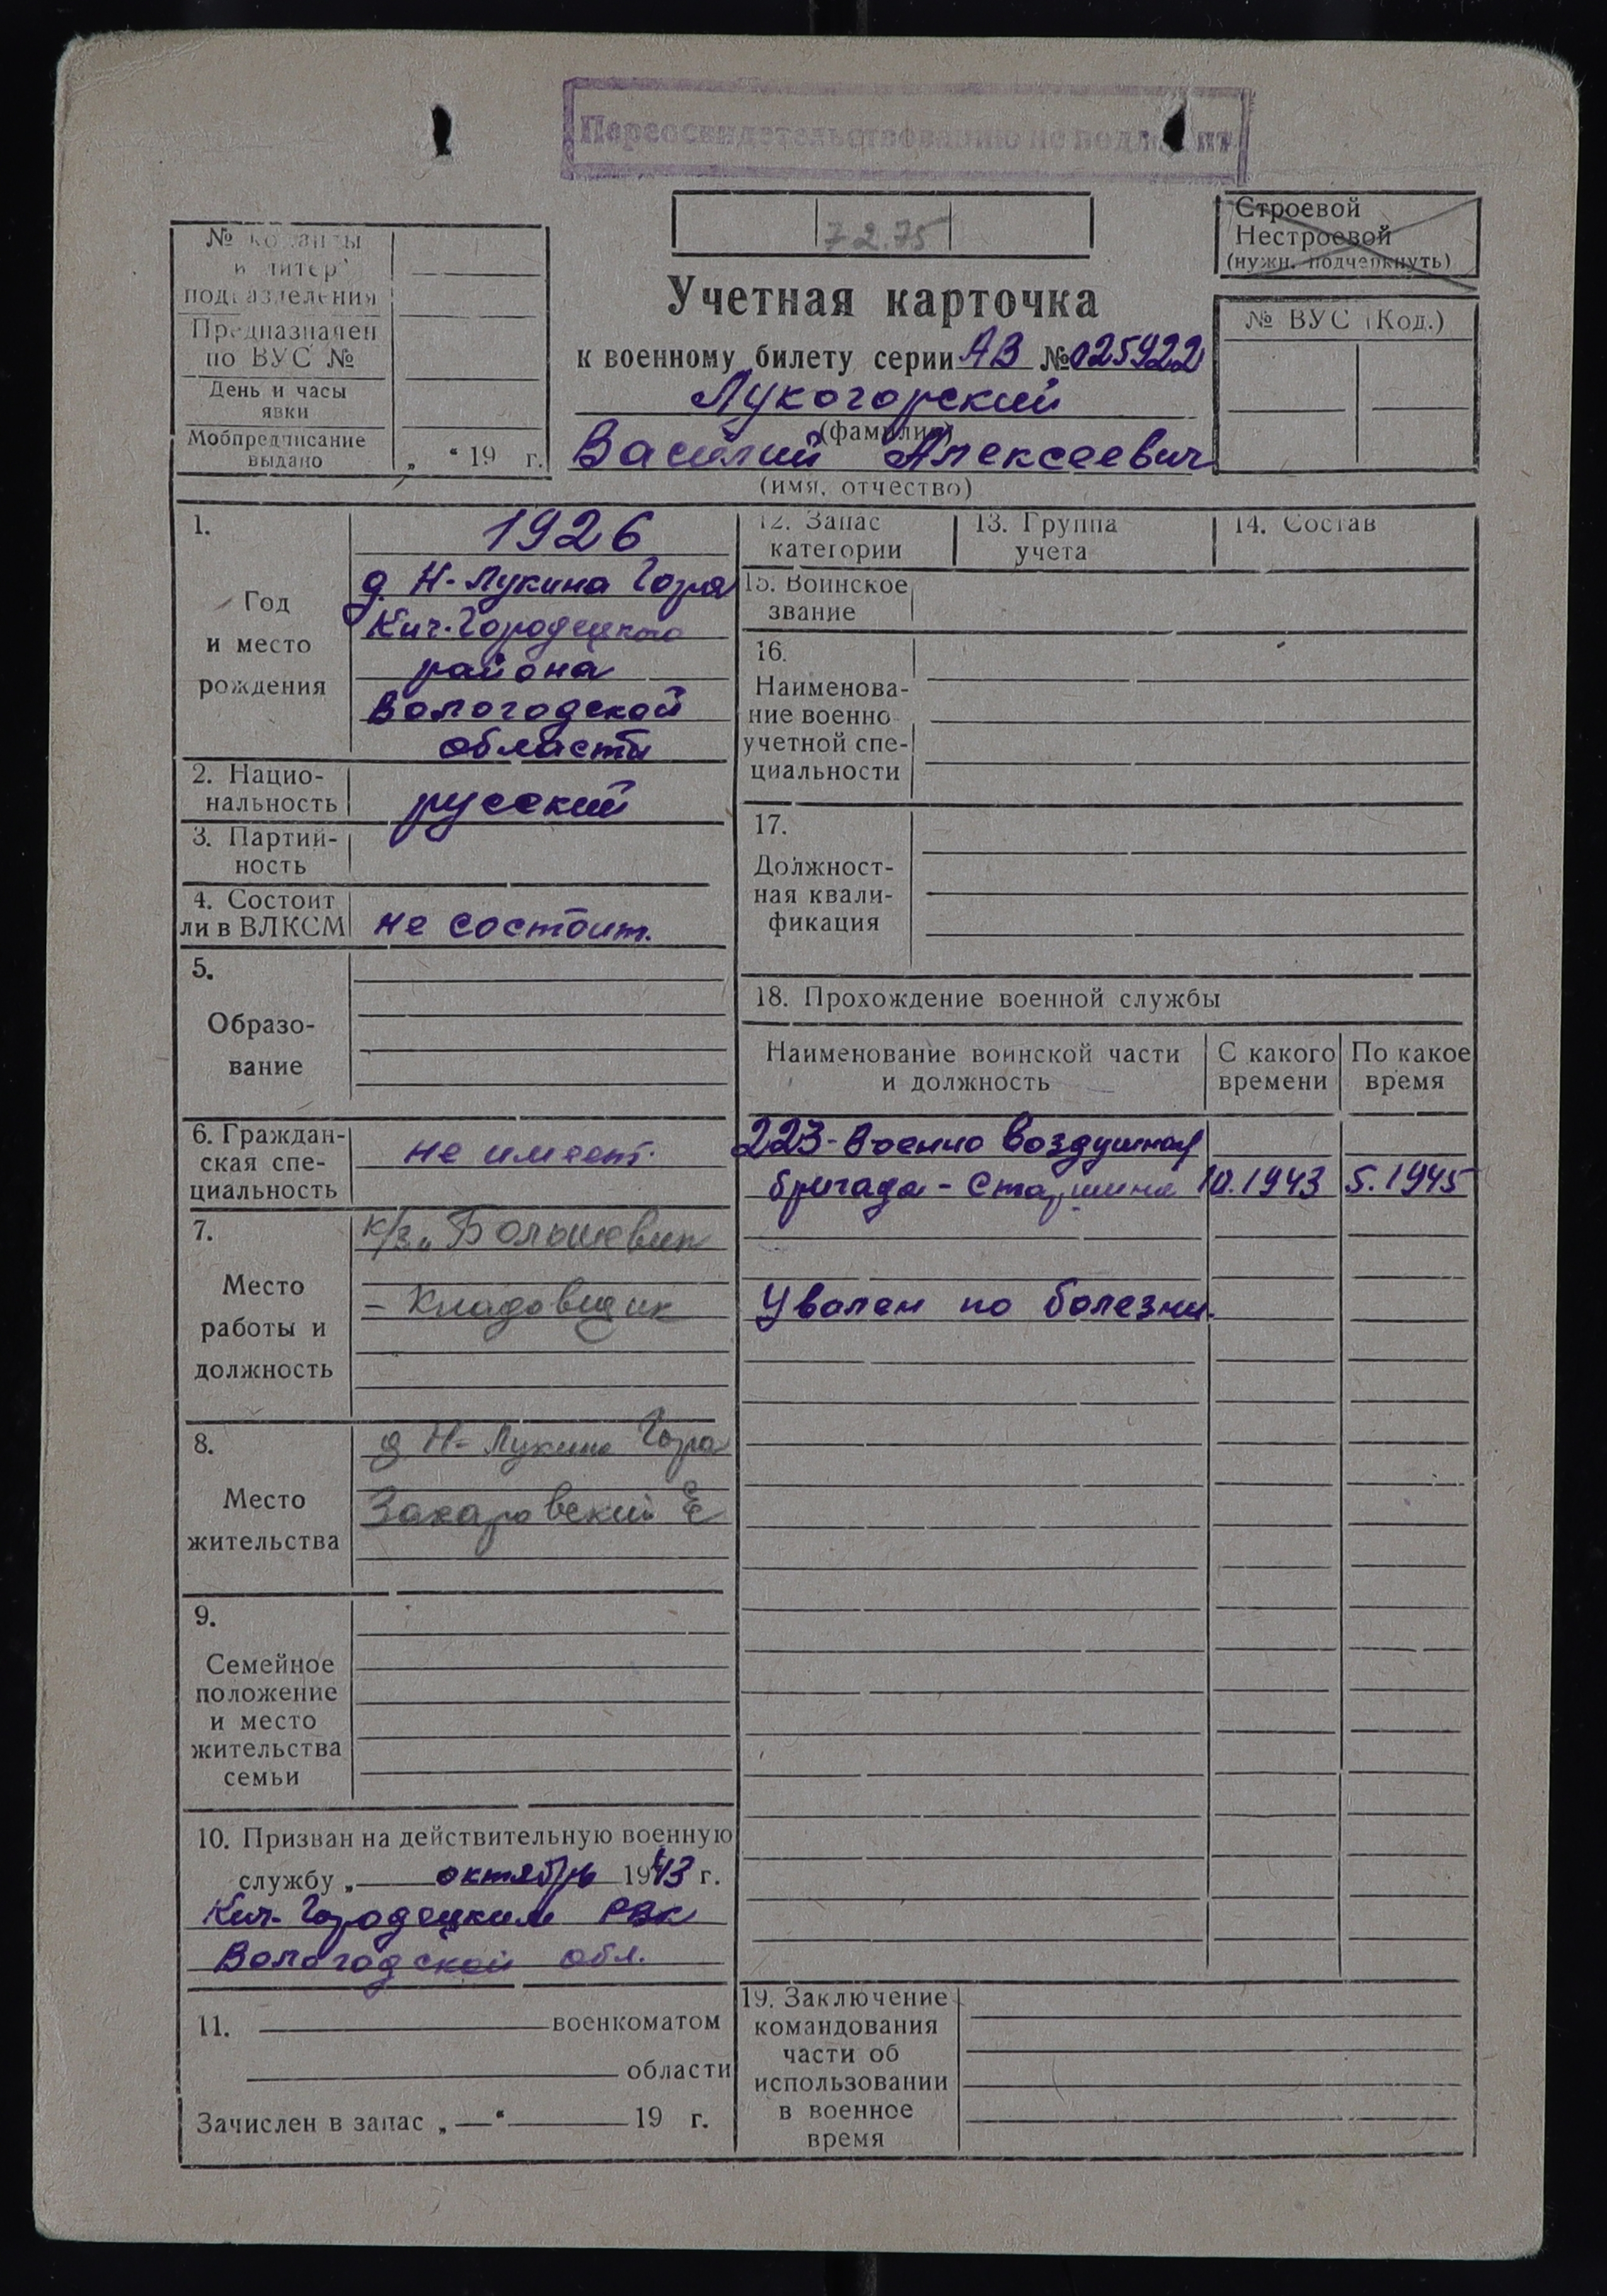 Переосвидетельствованию не подлежит
7.2.75
Строевой
Нестроевой
(нужн. подчеркнуть)
№ команды
и литер
подразделения
Предназначен
по ВУС №
День и часы
явки
Мобпредписание
выдано
„ “ 19 г.
Учетная карточка
к военному билету серии АВ № 025922
Лукогорский
(фамилия)
Василий Алексеевич
(имя, отчество)
№ ВУС (Код.)
1.
Год
и место
рождения
1926
д. Н-Лукина Гора
Кич.-Городецкого
района
Вологодской
области
2. Нацио-
нальность
русский
3. Партий-
ность
4. Состоит
ли в ВЛКСМ
не состоит.
5.
Образо-
вание
6. Граждан-
ская спе-
циальность
не имеет.
7.
Место
работы и
должность
к/з „Большевик
– Кладовщик
8.
Место
жительства
д Н- Лукина Гора
Захаровский
9.
Семейное
положение
и место
жительства
семьи
10. Призван на действительную военную
службу „ октябрь 1943 г.
Кич- Городецким РВК
Вологодской обл.
11. военкоматом
области
Зачислен в запас „—“ 19 г.
12. Запас
категории
13. Группа
учета
14. Состав
15. Воинское
звание
16.
Наименова-
ние военно
учетной спе-
циальности
17.
Должност-
ная квали-
фикация
18. Прохождение военной службы
Наименование воинской части
и должность
С какого
времени
По какое
время
223- Военно Воздушная
бригада - Старшина 10.1943 5.1945
Уволен по болезни.
19. Заключение
командования
части об
использовании
в военное
время